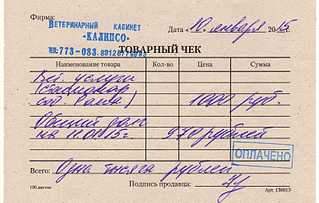 Фирма
ВЕТЕРИНАРНЫЙ КАБИНЕТ
«КАЛИПСО»
тел: 773-083,
Дата «10» января 2015
ТОВАРНЫЙ ЧЕК
Наименование товара Кол-во Цена Сумма
Вет. услуги
(стационар,
1000 руб.
Общий долг
на 11.01.15г. 970 рублей
ОПЛАЧЕНО
Всего: Одна тысяча рублей
Подпись продавца:
100 листов